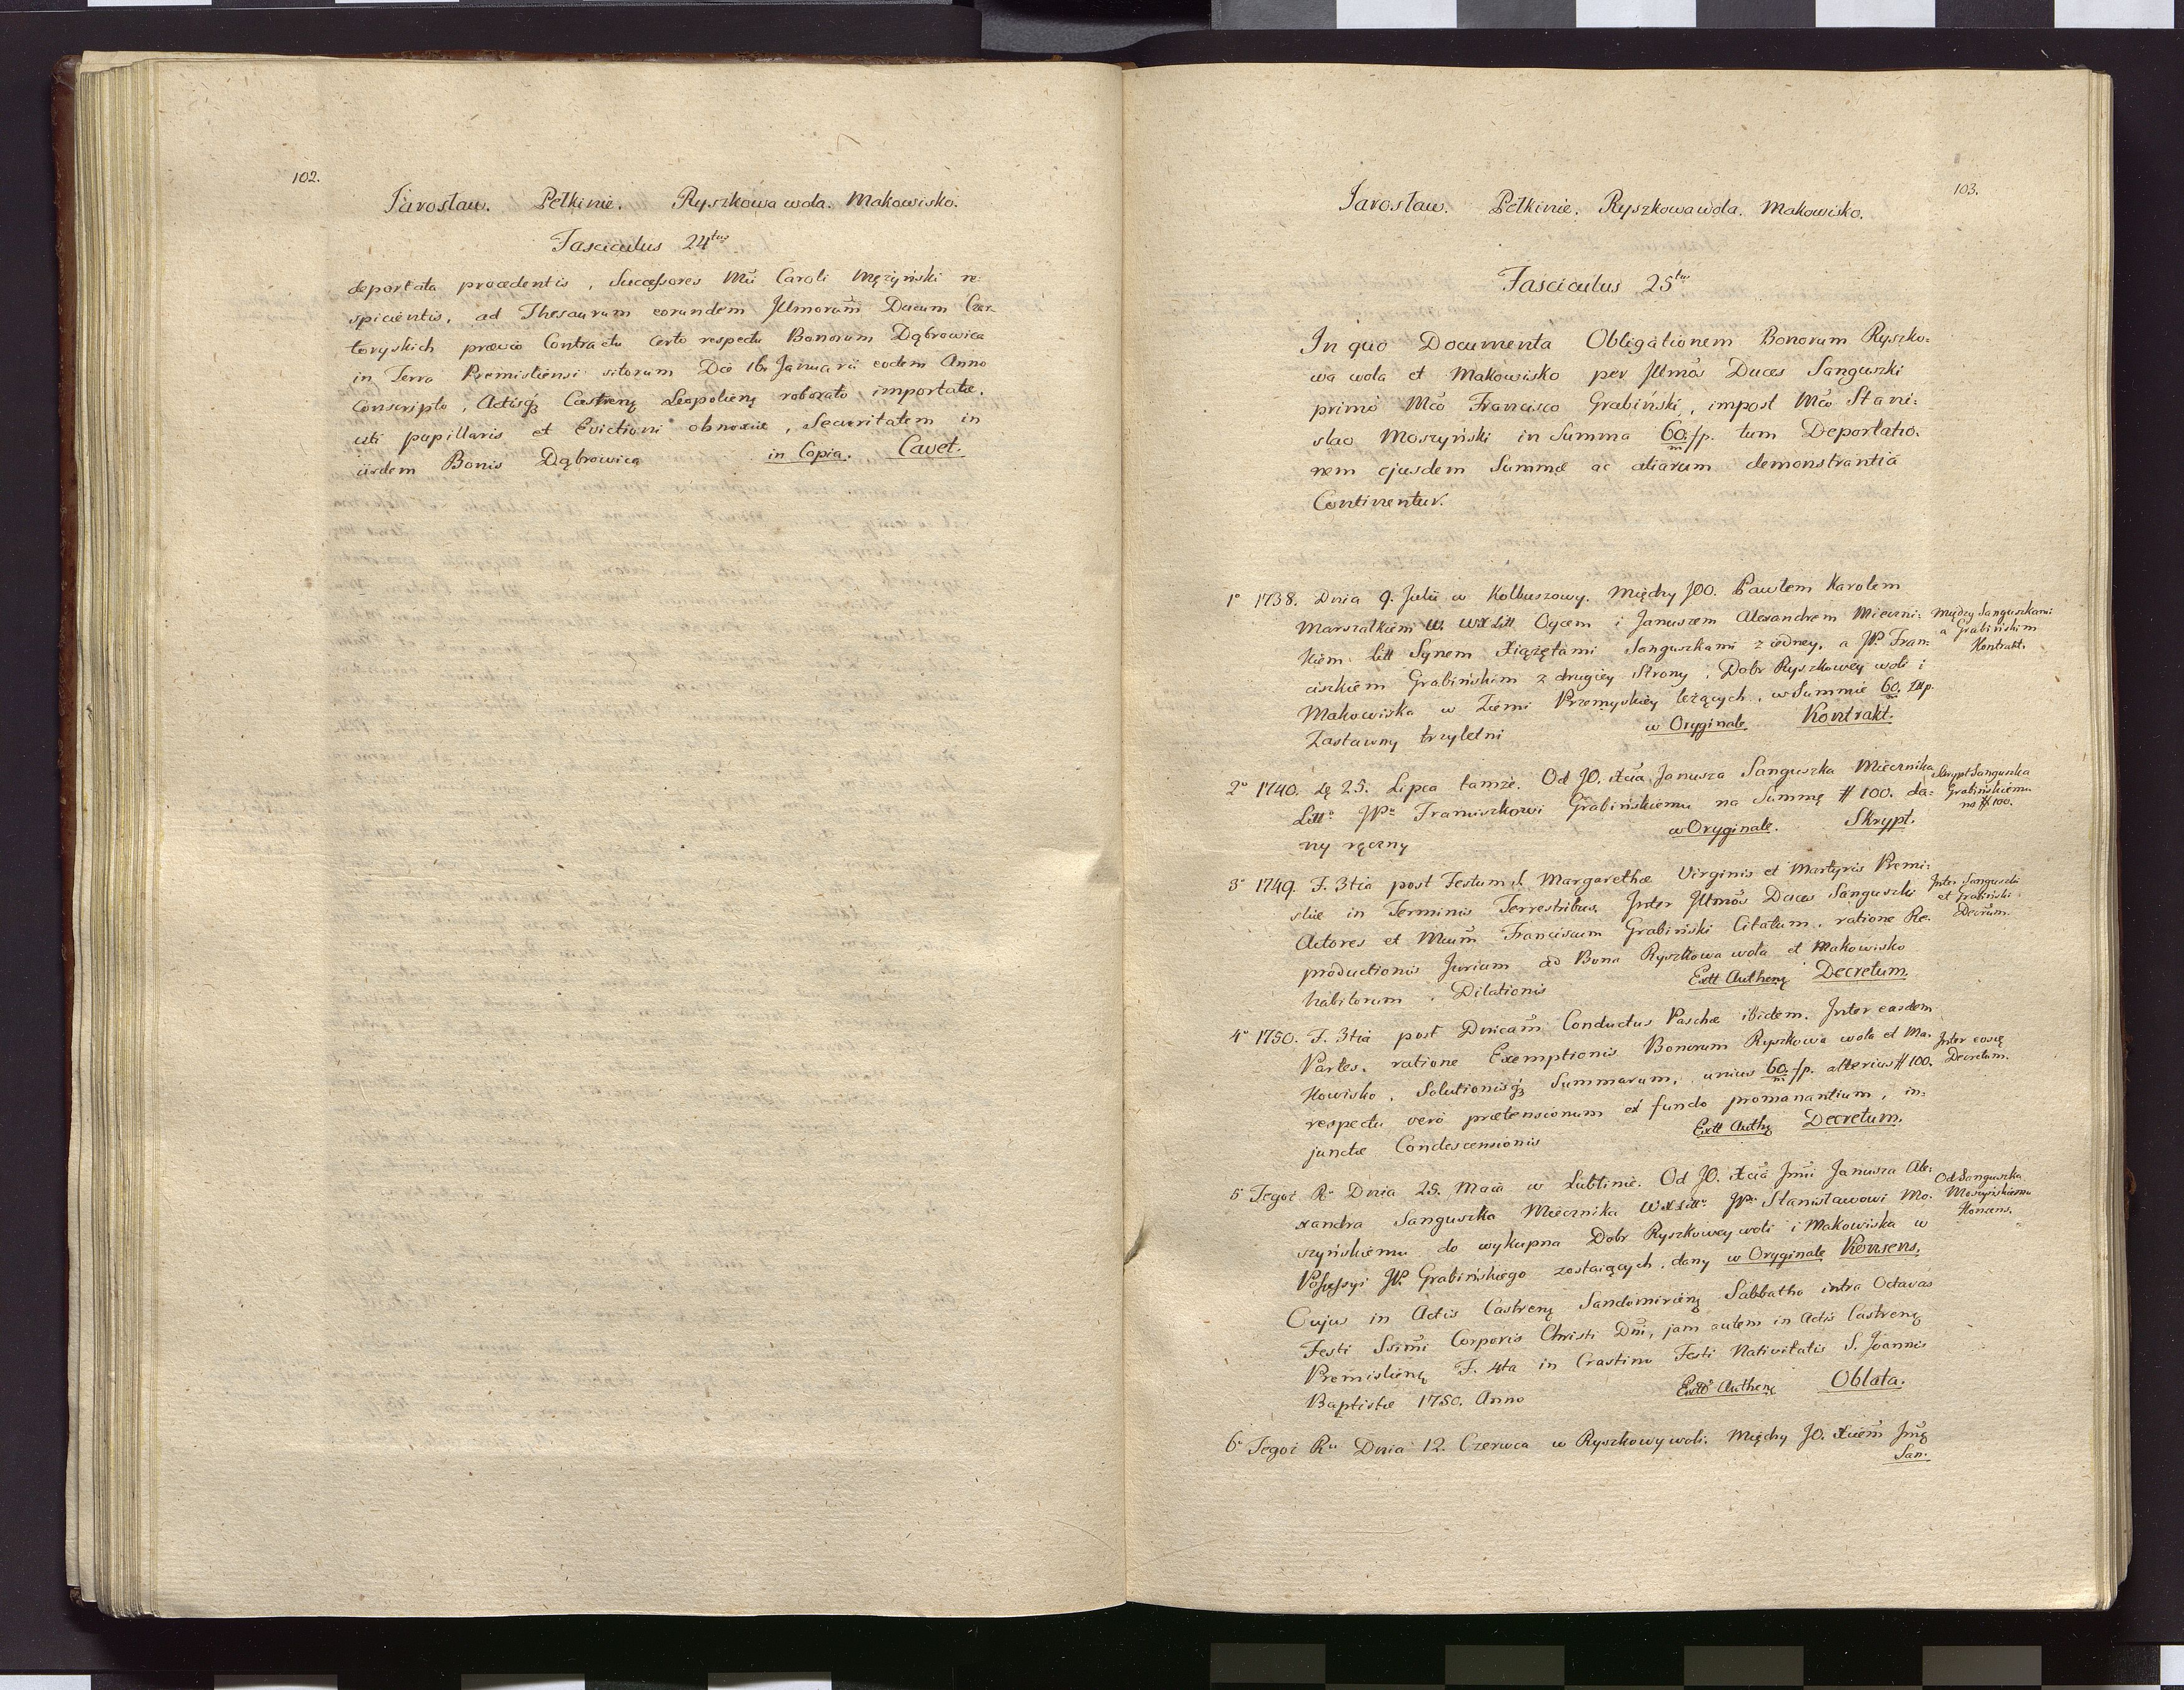 102.
Jarosław. Pełkinie. Ryszkowa wola. Makowisko.
Fasciculus 24tus
deportata procedentis, Successores Mci Caroli Mężyński re=
spicientis, ad Thesaurum eorundem Illmorum Ducum Czar=
toryskich prævio Contractu certo respectu Bonorum Dąbrowica
in Terra Premisliensi sitorum Die 16. Januarii eodem Anno
conscripto, Actisq3 Castren: Leopolien: roborato, importatæ,
uti pupillaris et Evictioni obnoxiæ, Securitatem in
iisdem Bonis Dąbrowica in Copia. Cavet.
103.
Jarosław. Pełkinie. Ryszkowa wola. Makowisko.
Fasciculus 25tus
In quo Documenta Obligationem Bonorum Ryszko=
wa wola et Makowisko per Illmos Duces Sanguszki
primo Mco Francisco Grabiński, impost Mco Stani=
slao Moszyński in Summa 60/m fp. tum Deportatio=
nem ejusdem Summæ ac aliarum demonstrantia
Continentur.
1o 1738. Dnia 9. Julii w Kolbuszowy. Między JOO. Pawłem Karolem
Marszałkiem W. WXLitt Oycem i Januszem Alexandrem Mieczni=
kiem Litt Synem Xiążętami Sanguszkami z iedney, a JP. Fran=
ciszkiem Grabińskim z drugiey Strony, Dobr Ryszkowey woli i
Makowiska w Ziemi Przemyskiey leżących, w Summie 60/m Złłp.
Zastawny trzyletni w Oryginale Kontrakt.
Między Sanguszkami
a Grabińskim
Kontrakt.
2o 1740. Dę 25. Lipca tamże. Od JO. Xcia Janusza Sanguszka Miecznika
Litto JPu Franciszkowi Grabińskiemu na Summę # 100. da=
ny ręczny w Oryginale. Skrypt.
Skrypt Sanguszka
Grabińskiemu
na # 100.
3o 1749. F. 3tia post Festum S. Margarethæ Virginis et Martyris Premi=
sliæ in Terminis Terrestribus. Inter Illmos Duces Sanguszki
Actores et Mcum Franciscum Grabiński Citatum, ratione Re=
productionis Jurium ad Bona Ryszkowa wola et Makowisko
habitorum, Dilationis Extt Authen: Decretum.
Inter Sanguszki
et Grabiński
Decrum.
4o 1750. F. 3tia post Dnicam Conductus Paschæ ibidem. Inter easdem
Partes, ratione Exemptionis Bonorum Ryszkowa wola et Ma=
kowisko, Solutionisq3 Summarum, unius 60/m fp. alterius # 100.
respectu vero prætensionum ex fundo promanantium, in=
junctæ Condescensionis Extt Auth: Decretum.
Inter eosdę
Decretum.
5o Tegoż Ru Dnia 25. Maia w Lublinie. Od JO. Xcia Jmci Janusza Ale=
xandra Sanguszka Miecznika WXLitto JPu Stanisławowi Mo=
szyńskiemu do wykupna Dobr Ryszkowey woli i Makowiska w
Possessyi JP. Grabińskiego zostaiących, dany w Oryginale Konsens.
Cujus in Actis Castren: Sandomirien: Sabbatho intra Octavas
Festi Ssimi Corporis Christi Dni, jam autem in Actis Castren:
Premislien: F. 4ta in Crastino Festi Nativitatis S. Joannis
Baptistæ 1750. Anno Extt Authen: Oblata.
Od Sanguszka
Moszyńskiemu
Konsens.
6o Tegoż Ru Dnia 12. Czerwca w Ryszkowy woli. Między JO. Xciem Jmę
San=